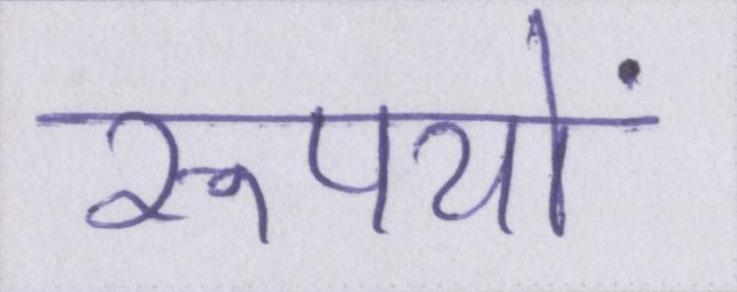 रूपयों